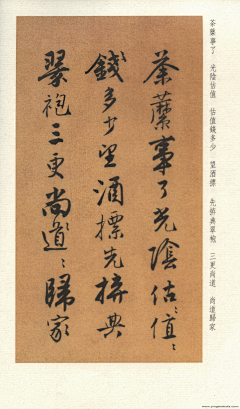 荼蘼事了光陰估〻值〻
錢多少望酒摽先拚典
翠袍三更尚〻道〻歸家
茶蘼事了　光陰估值　估值錢多少　望酒摽　先拚典翠袍　三更尚道　尚道歸家